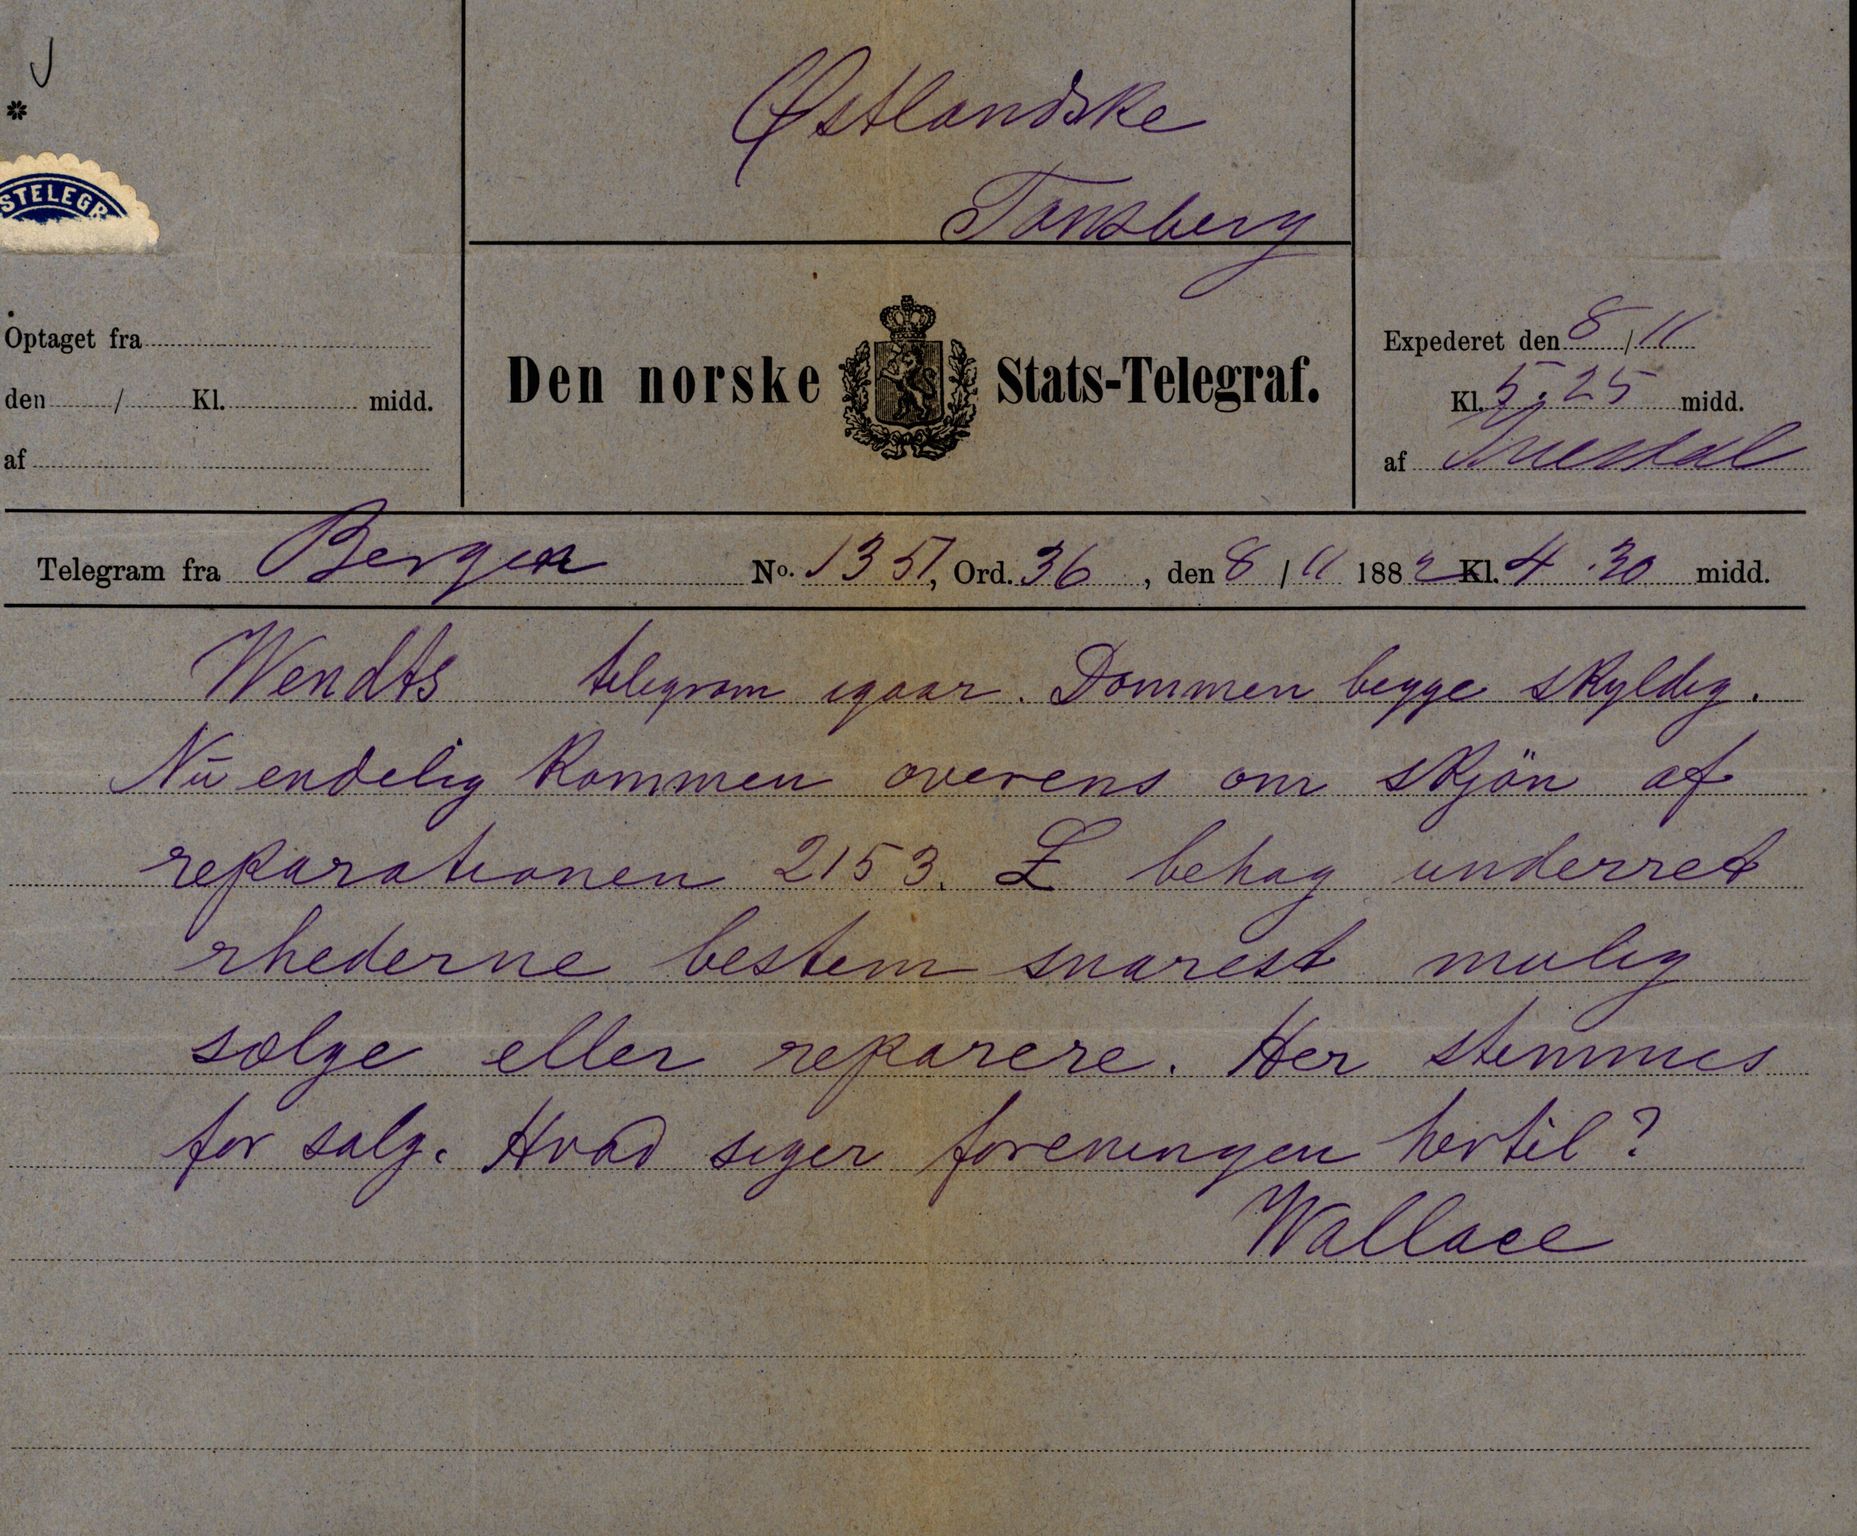 Østlandske
Tønsberg
STELEGR
Optaget fra
den / Kl. midd.
af
Den norske Stats-Telegraf.
Expederet den 8/11
Kl. 5.25 midd.
af
Telegram fra Bergen No. 1351, Ord. 36, den 8/11 1882 Kl. 4.30 midd.
Wendts telegram igaar. Dommen begge skyldig.
Nū endelig kommen overens om skjön af
reparationen 2153. £ behag underret
rhederne bestem snarest mulig
sælge eller reparere. Her stemmes
for salg. Hvad siger foreningen hertil?
Wallace